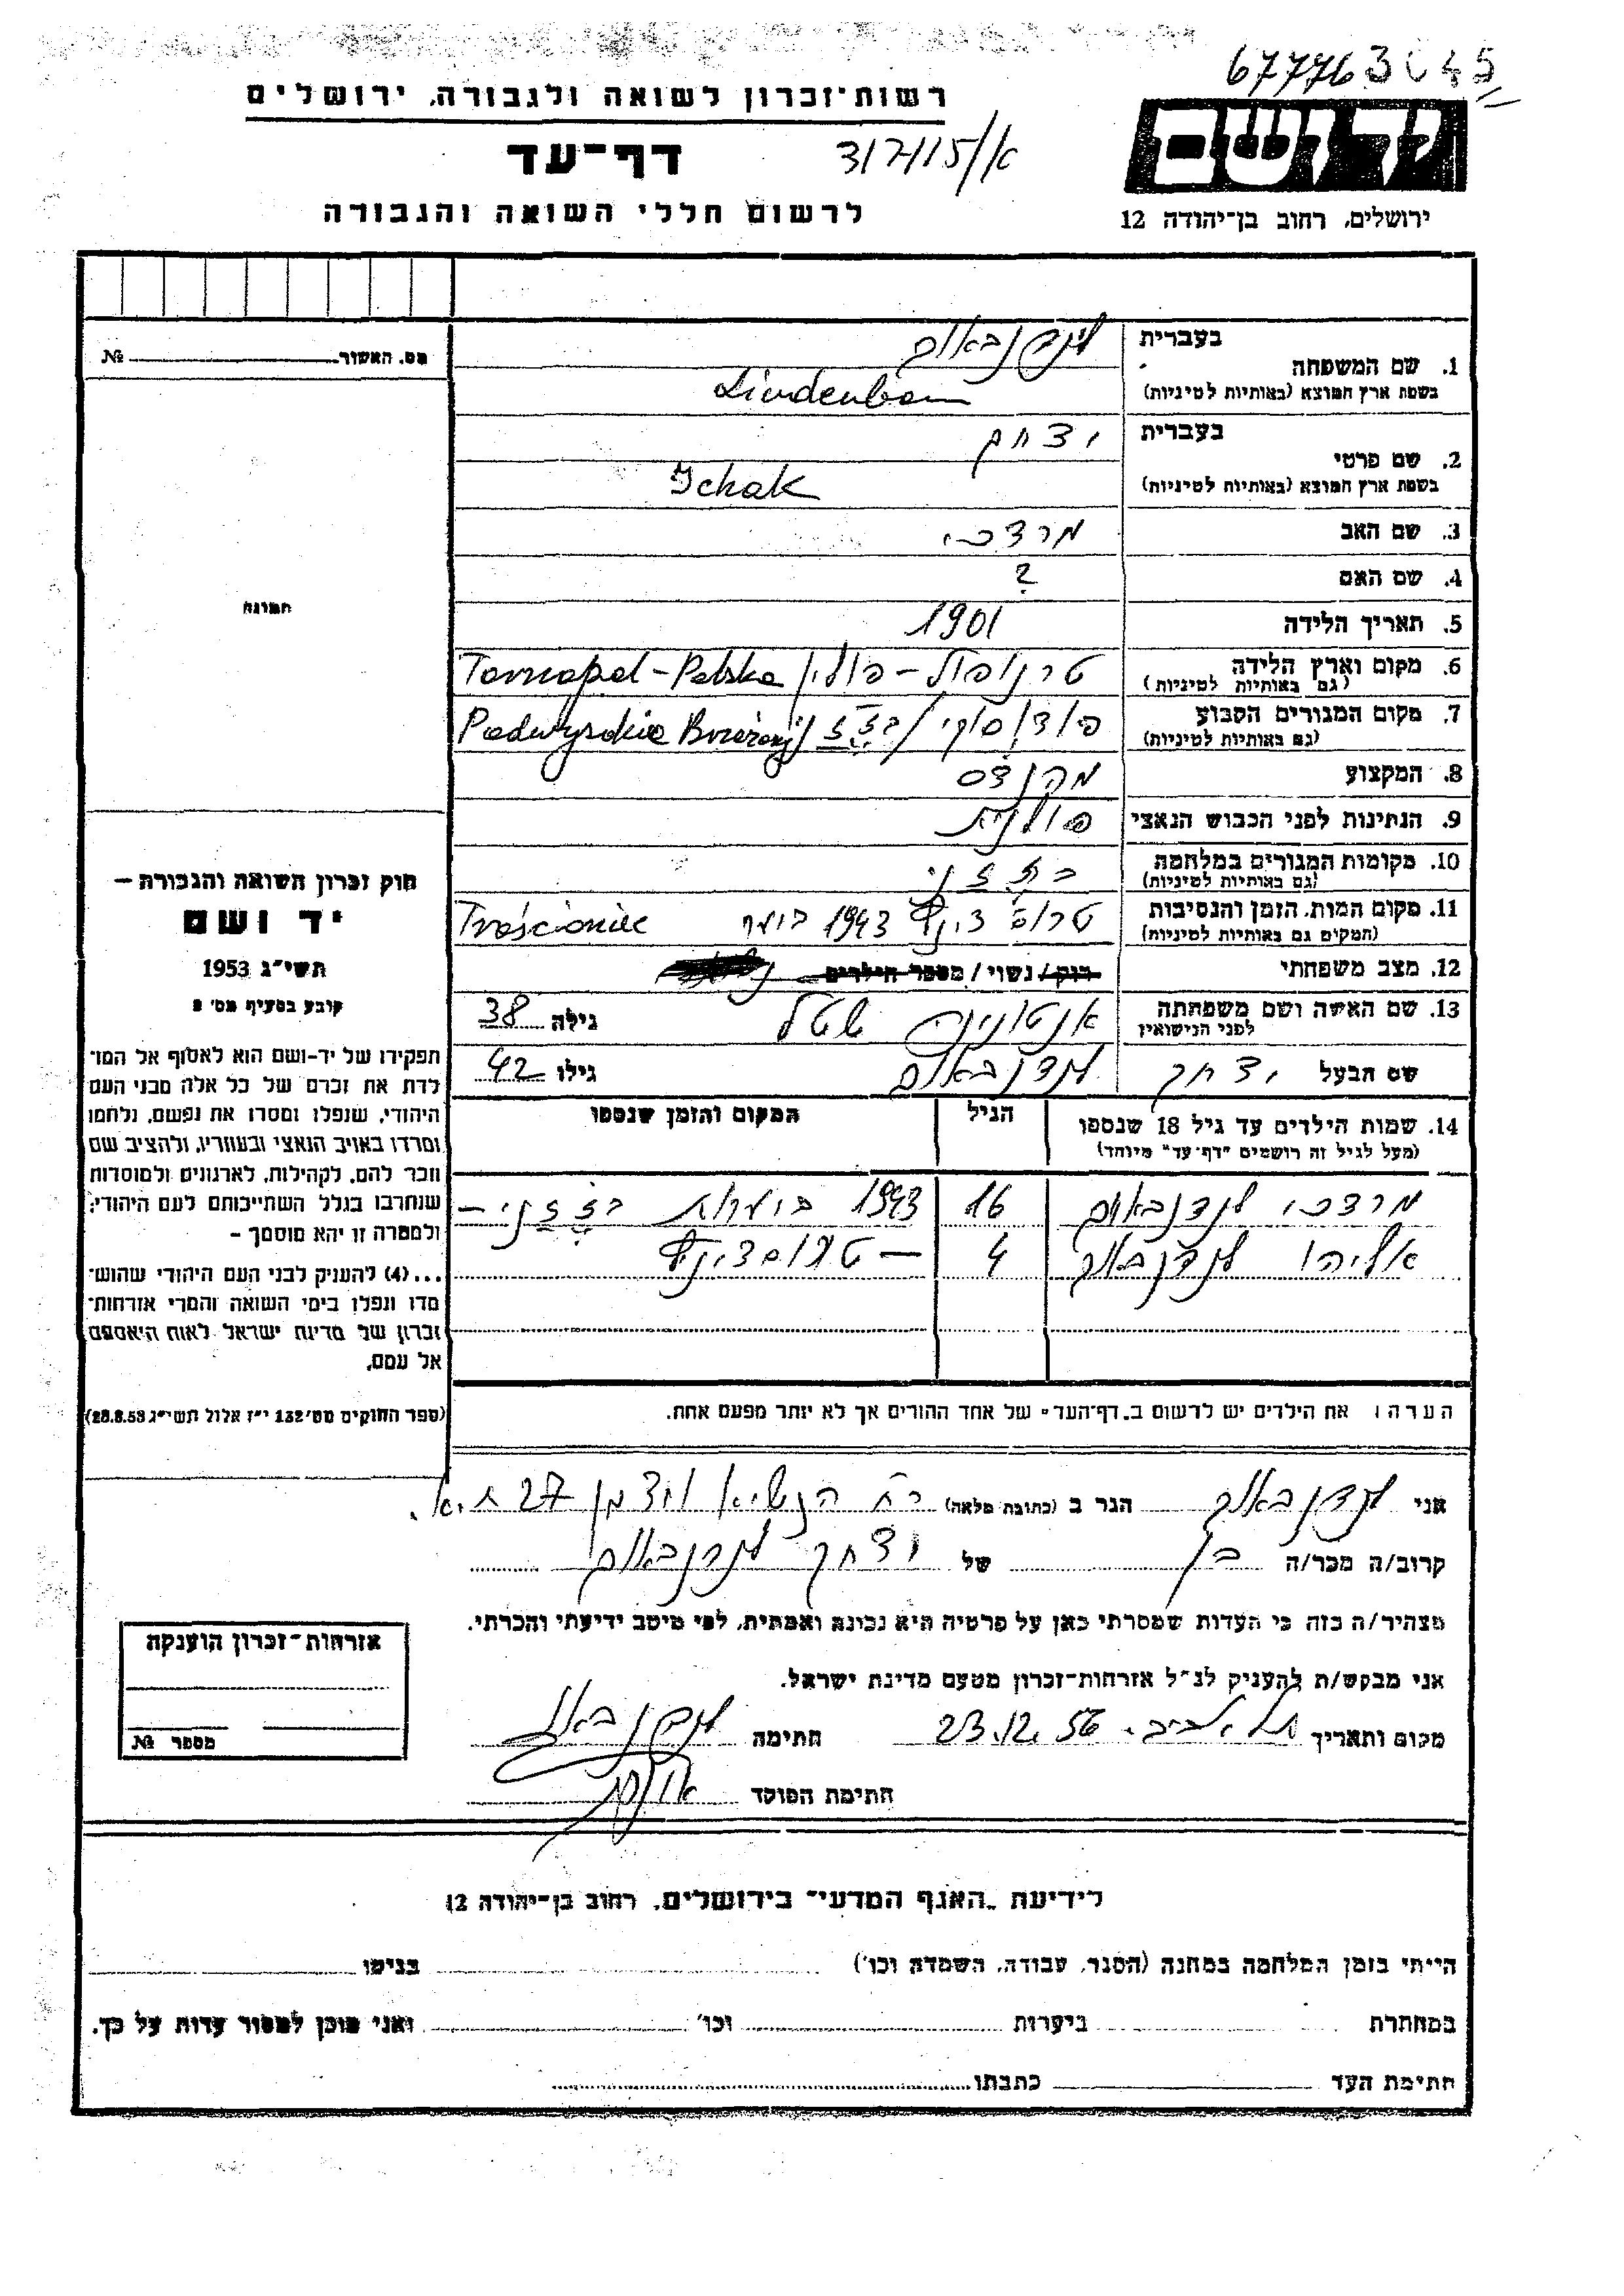 6777630 45
רשות־זכרון לשואה ולגבורה, ירושלים
דף־עד
317/15/א
לרשום חללי השואה והגבורה
יד ושם
ירושלים, רחוב בן־יהודה 12
מס. האשור №
בעברית
1. שם המשפחה
בשפת ארץ המוצא (באותיות לטיניות)
לינדנבאום
Lindenbaum
בעברית
2. שם פרטי
בשפת ארץ המוצא (באותיות לטיניות)
יצחק
Ichak
3. שם האב מרדכי
4. שם האם ?
5. תאריך הלידה 1901
6. מקום וארץ הלידה
(גם באותיות לטיניות)
טרנופול – פולין Tarnopol - Polska
7. מקום המגורים הקבוע
(גם באותיות לטיניות)
Podwysokie Brzeżany
8. המקצוע מהנדס
9. הנתינות לפני הכבוש הנאצי פולנית
10. מקומות המגורים במלחמה
(גם באותיות לטיניות)
11. מקום המות, הזמן והנסיבות
(המקום גם באותיות לטיניות)
1943 Trościaniec
12. מצב משפחתי רוק / נשוי / מספר הילדים
13. שם האשה ושם משפחתה
לפני הנישואין
אנטונינה גילה 38
שם הבעל יצחק לנדנבאום גילו 42
14. שמות הילדים עד גיל 18 שנספו
(מעל לגיל זה רושמים "דף־עד" מיוחד)
הגיל
המקום והזמן שנספו
מרדכי לנדנבאום 16 1943
אליהו לנדנבאום 4
הערה: את הילדים יש לרשום ב„דף־העד" של אחד ההורים אך לא יותר מפעם אחת.
תמונה
חוק זכרון השואה והגבורה –
יד ושם
תשי"ג 1953
קובע בסעיף מס' 2
תפקידו של יד-ושם הוא לאסוף אל המו־
לדת את זכרם של כל אלה מבני העם
היהודי, שנפלו ומסרו את נפשם, נלחמו
ומרדו באויב הנאצי ובעוזריו, ולהציב שם
וזכר להם, לקהילות, לארגונים ולמוסדות
שנחרבו בגלל השתייכותם לעם היהודי;
ולמטרה זו יהא מוסמך –
...(4) להעניק לבני העם היהודי שהוש־
מדו ונפלו בימי השואה והמרי אזרחות־
זכרון של מדינת ישראל לאות היאספם
אל עמם.
(ספר החוקים מס' 132 י"ז אלול תשי"ג 28.8.53)
אני לנדנבאום הגר ב (כתובת מלאה) רח הנשיא ויצמן 27 ת.א.
קרוב/ה מכר/ה בן של יצחק לנדנבאום
מצהיר/ה בזה כי העדות שמסרתי כאן על פרטיה היא נכונה ואמתית, לפי מיטב ידיעתי והכרתי.
אני מבקש/ת להעניק לנ"ל אזרחות־זכרון מטעם מדינת ישראל.
מקום ותאריך תל אביב. 23.12.56 חתימה לנדנבאום
חתימת הפוקד
אזרחות־זכרון הוענקה
מספר №
לידיעת „האגף המדעי" בירושלים, רחוב בן־יהודה 12
הייתי בזמן המלחמה במחנה (הסגר, עבודה, השמדה וכו') בגיטו
במחתרת ביערות וכו' ואני מוכן למסור עדות על כך.
חתימת העד כתבתו